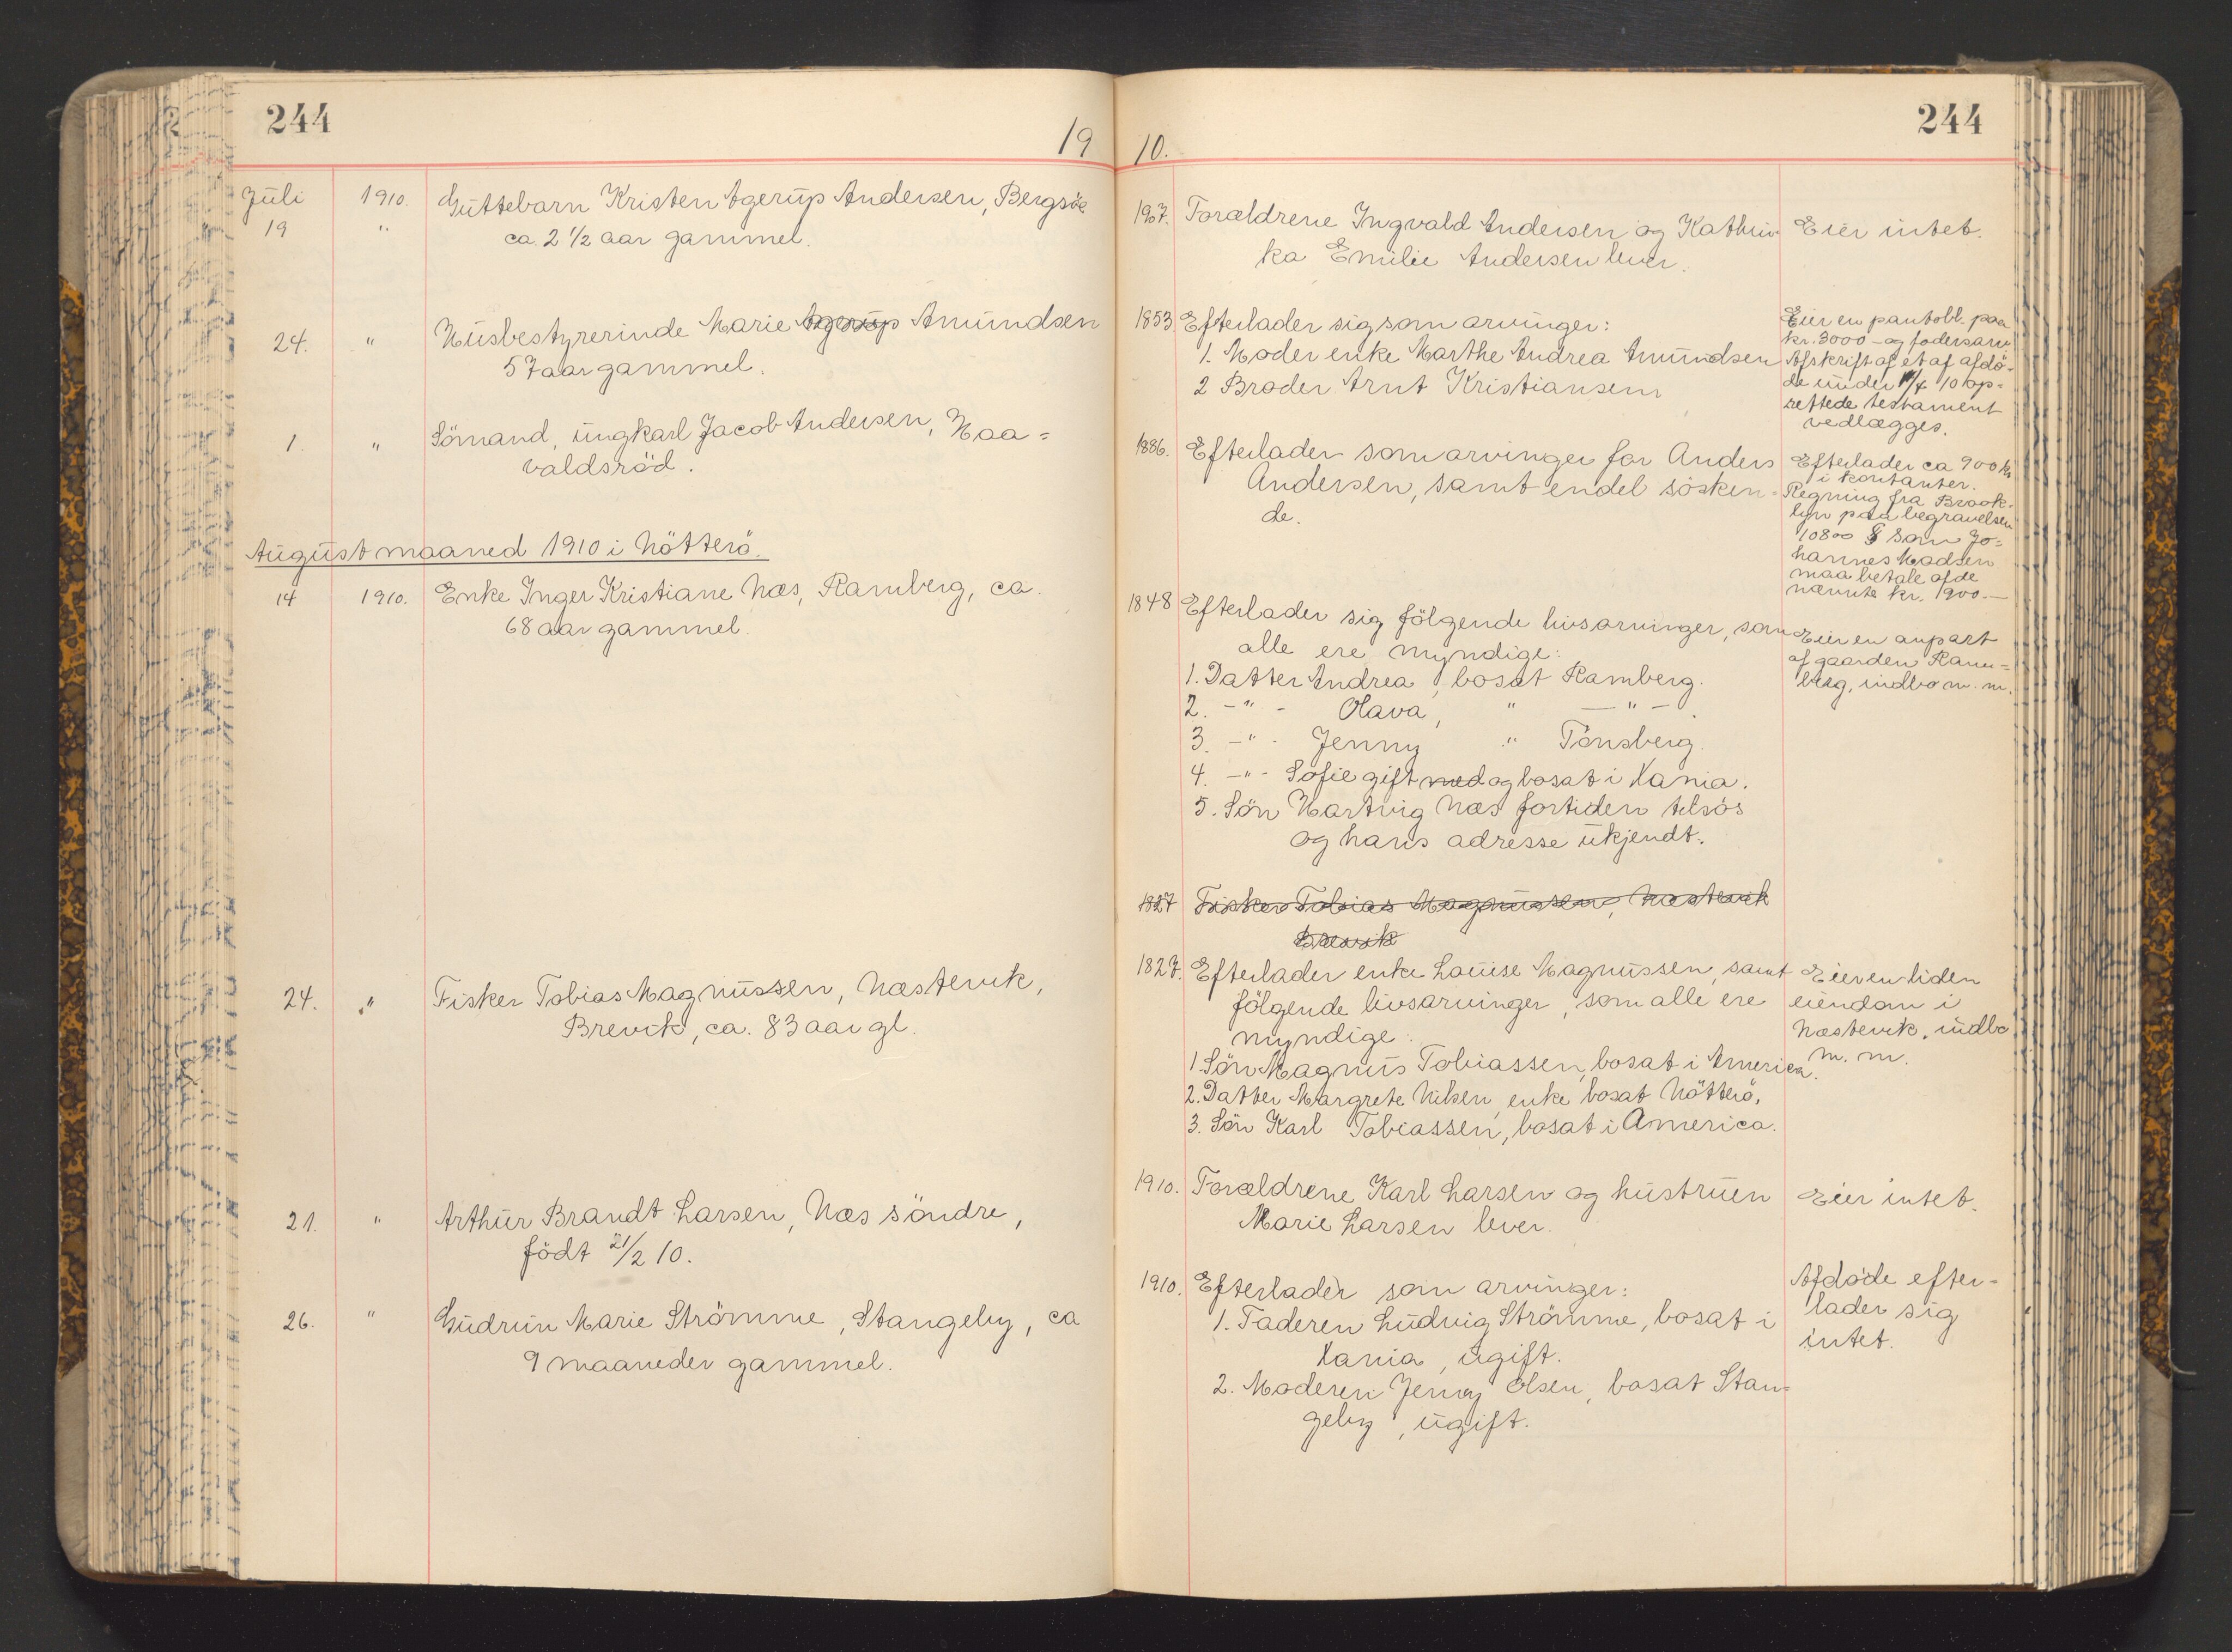 244
19
Juli 1910. Guttebarn Kristen Agerup Andersen, Bergsöe
19 " ca. 2 1/2 aar gammel.
24. " Husbestyrerinde Marie Agerup Amundsen
57 aar gammel.
1. " Sömand, ungkarl Jacob Andersen, Haa=
valdsröd.
August maaned 1910 i Nötterö.
14 1910. Enke Inger Kristiane Næs, Ramberg, ca.
68 aar gammel.
24. " Fisker Tobias Magnussen, Næstevik,
Brevik, ca. 83 aar gl.
21. " Arthur Brandt Larsen, Næs söndre,
födt 21/2 10.
26. " Gudrun Marie Strömme, Stangeby, ca
9 maaneder gammel.
244
10.
1907. Forældrene Ingvald Andersen og Kathrin
ka Emilie Andersen lever.
Eier intet.
1853 Efterlader sig som arvinger:
1. Moder enke Marthe Andrea Amundsen
2 Broder Arnt Kristiansen
Eier en pantobl. paa
kr. 3000 - og fodersarv
Afskrift af et af afdö-
de under /4 10 op=
rettede testament
vedlægges.
1886. Efterlader som arvinger far Anders
Andersen, samt endel sösken=
de.
Efterlader ca 900 kr
i kontanter.
Regning fra Brook-
lyn paa begravelsen
10800 $ som Jo=
hannes Madsen
maa betale af de
nævnte kr. 900.-
1848 Efterlader sig fölgende livsarvinger, som
alle ere myndige:
1. Datter Andrea, bosat Ramberg.
2. -"- Olava, " -"-.
3. -"- Jenny " Tönsberg.
4. -"- Sofie gift med og bosat i Kania.
5. Sön Hartvig Næs fortiden tilsös
og hans adresse ukjendt.
Eier en anpart
af gaarden Ram=
berg, indbo m. m.
1827 Fisker Tobias Magnussen, Næstevik
Brevik
1827. Efterlader enke Louise Magnussen, samt
fölgende livsarvinger, som alle ere
myndige:
1. Sön Magnus Tobiassen, bosat i America.
2. Datter Margrete Nilsen, enke bosat Nötterö,
3. Sön Karl Tobiassen, bosat i America.
Eier en liden
eiendom i
Næstevik, indbo
m. m.
1910. Forældrene Karl Larsen og hustruen
Marie Larsen lever.
Eier intet.
1910. Efterlader som arvinger:
1. Faderen Ludvig Strömme, bosat i
Kania, ugift.
2. Moderen Jenny Olsen, bosat Stan=
geby, ugift.
Afdöde efter=
lader sig
intet.